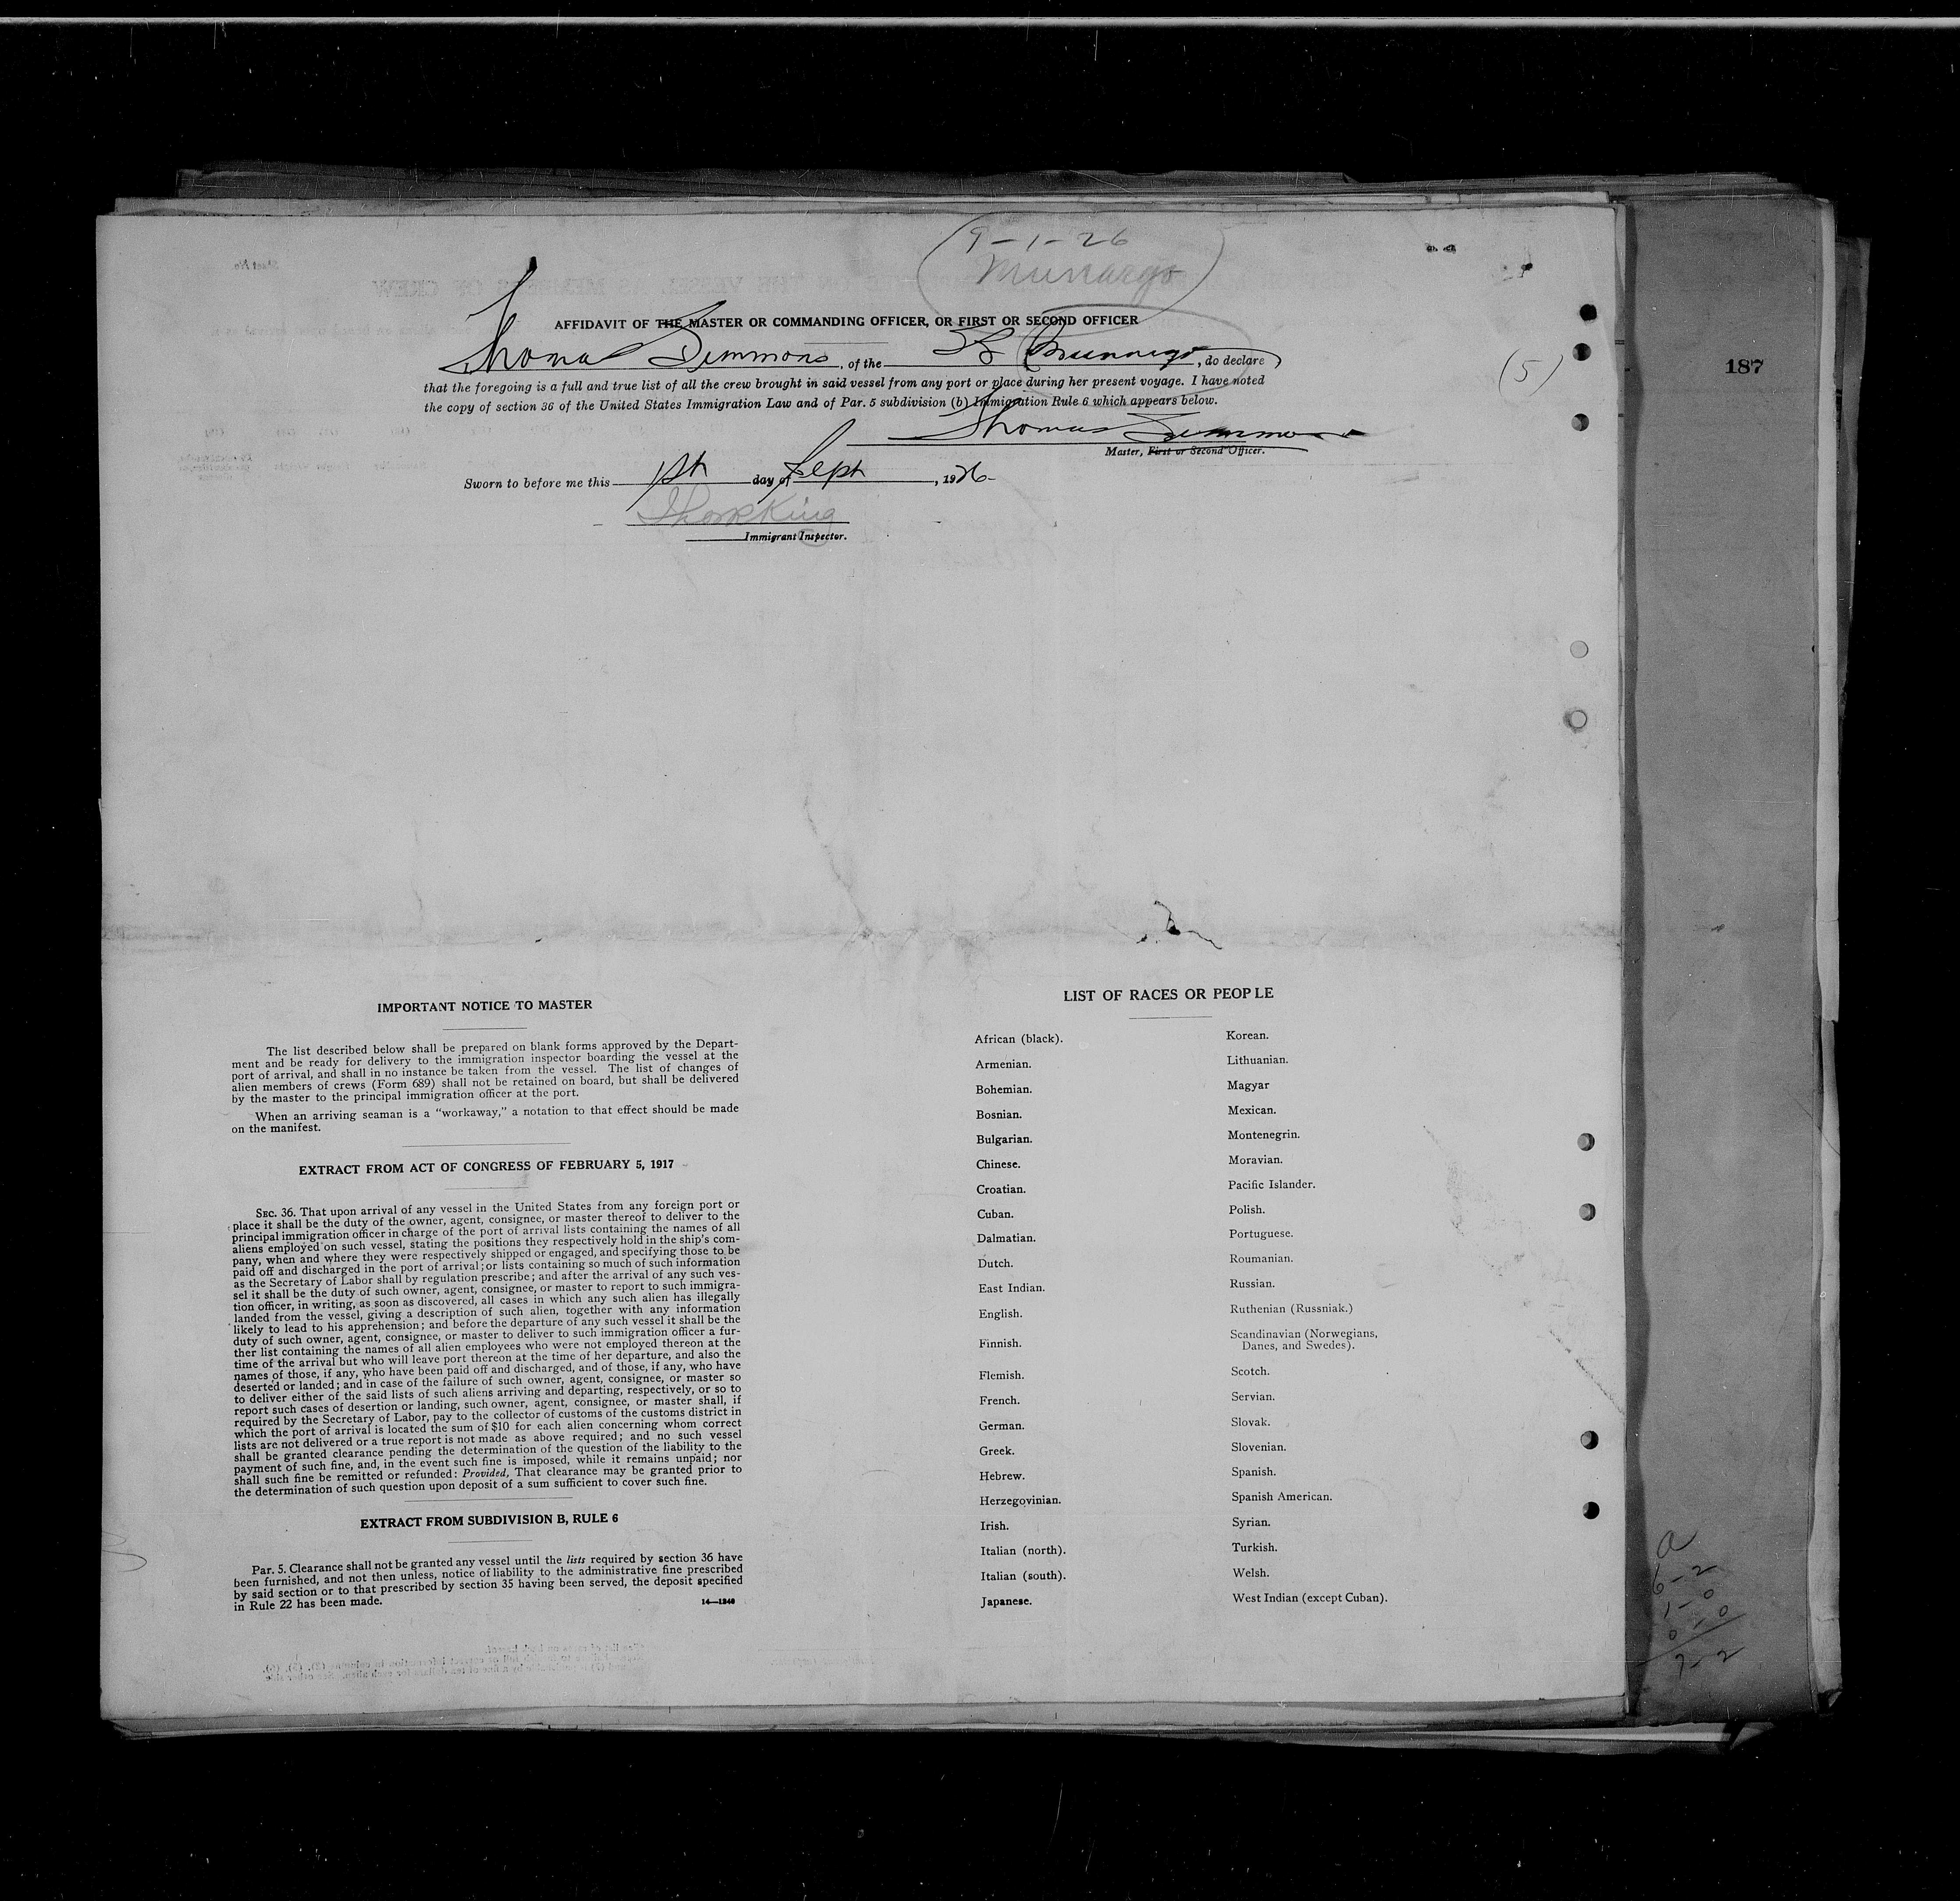 9-1-26
Munargo
AFFIDAVIT OF THE MASTER OR COMMANDING OFFICER, OR FIRST OR SECOND OFFICER
Thomas Simmons, of the SS Munargo, do declare
that the foregoing is a full and true list of all the crew brought in said vessel from any port or place during her present voyage. I have noted
the copy of section 36 of the United States Immigration Law and of Par. 5 subdivision (b) Immigration Rule 6 which appears below.
(5)
187
Thomas Simmons
Master, First or Second Officer.
Sworn to before me this 1st day of Sept, 1926
King
Immigrant Inspector.
IMPORTANT NOTICE TO MASTER
The list described below shall be prepared on blank forms approved by the Depart-
ment and be ready for delivery to the immigration inspector boarding the vessel at the
port of arrival, and shall in no instance be taken from the vessel. The list of changes of
alien members of crews (Form 689) shall not be retained on board, but shall be delivered
by the master to the principal immigration officer at the port.
When an arriving seaman is a "workaway," a notation to that effect should be made
on the manifest.
EXTRACT FROM ACT OF CONGRESS OF FEBRUARY 5, 1917
SEC. 36. That upon arrival of any vessel in the United States from any foreign port or
place it shall be the duty of the owner, agent, consignee, or master thereof to deliver to the
principal immigration officer in charge of the port of arrival lists containing the names of all
aliens employed on such vessel, stating the positions they respectively hold in the ship's com-
pany, when and where they were respectively shipped or engaged, and specifying those to be
paid off and discharged in the port of arrival; or lists containing so much of such information
as the Secretary of Labor shall by regulation prescribe; and after the arrival of any such ves-
sel it shall be the duty of such owner, agent, consignee, or master to report to such immigra-
tion officer, in writing, as soon as discovered, all cases in which any such alien has illegally
landed from the vessel, giving a description of such alien, together with any information
likely to lead to his apprehension; and before the departure of any such vessel it shall be the
duty of such owner, agent, consignee, or master to deliver to such immigration officer a fur-
ther list containing the names of all alien employees who were not employed thereon at the
time of the arrival but who will leave port thereon at the time of her departure, and also the
names of those, if any, who have been paid off and discharged, and of those, if any, who have
deserted or landed; and in case of the failure of such owner, agent, consignee, or master so
to deliver either of the said lists of such aliens arriving and departing, respectively, or so to
report such cases of desertion or landing, such owner, agent, consignee, or master shall, if
required by the Secretary of Labor, pay to the collector of customs of the customs district in
which the port of arrival is located the sum of $10 for each alien concerning whom correct
lists are not delivered or a true report is not made as above required; and no such vessel
shall be granted clearance pending the determination of the question of the liability to the
payment of such fine, and, in the event such fine is imposed, while it remains unpaid; nor
shall such fine be remitted or refunded: Provided, That clearance may be granted prior to
the determination of such question upon deposit of a sum sufficient to cover such fine.
EXTRACT FROM SUBDIVISION B, RULE 6
Par. 5. Clearance shall not be granted any vessel until the lists required by section 36 have
been furnished, and not then unless, notice of liability to the administrative fine prescribed
by said section or to that prescribed by section 35 having been served, the deposit specified
in Rule 22 has been made.
14—1240
LIST OF RACES OR PEOPLE
African (black).
Armenian.
Bohemian.
Bosnian.
Bulgarian.
Chinese.
Croatian.
Cuban.
Dalmatian.
Dutch.
East Indian.
English.
Finnish.
Flemish.
French.
German.
Greek.
Hebrew.
Herzegovinian.
Irish.
Italian (north).
Italian (south).
Japanese.
Korean.
Lithuanian.
Magyar
Mexican.
Montenegrin.
Moravian.
Pacific Islander.
Polish.
Portuguese.
Roumanian.
Russian.
Ruthenian (Russniak.)
Scandinavian (Norwegians,
Danes, and Swedes).
Scotch.
Servian.
Slovak.
Slovenian.
Spanish.
Spanish American.
Syrian.
Turkish.
Welsh.
West Indian (except Cuban).
a
6-2
1-0
0-0
7-2